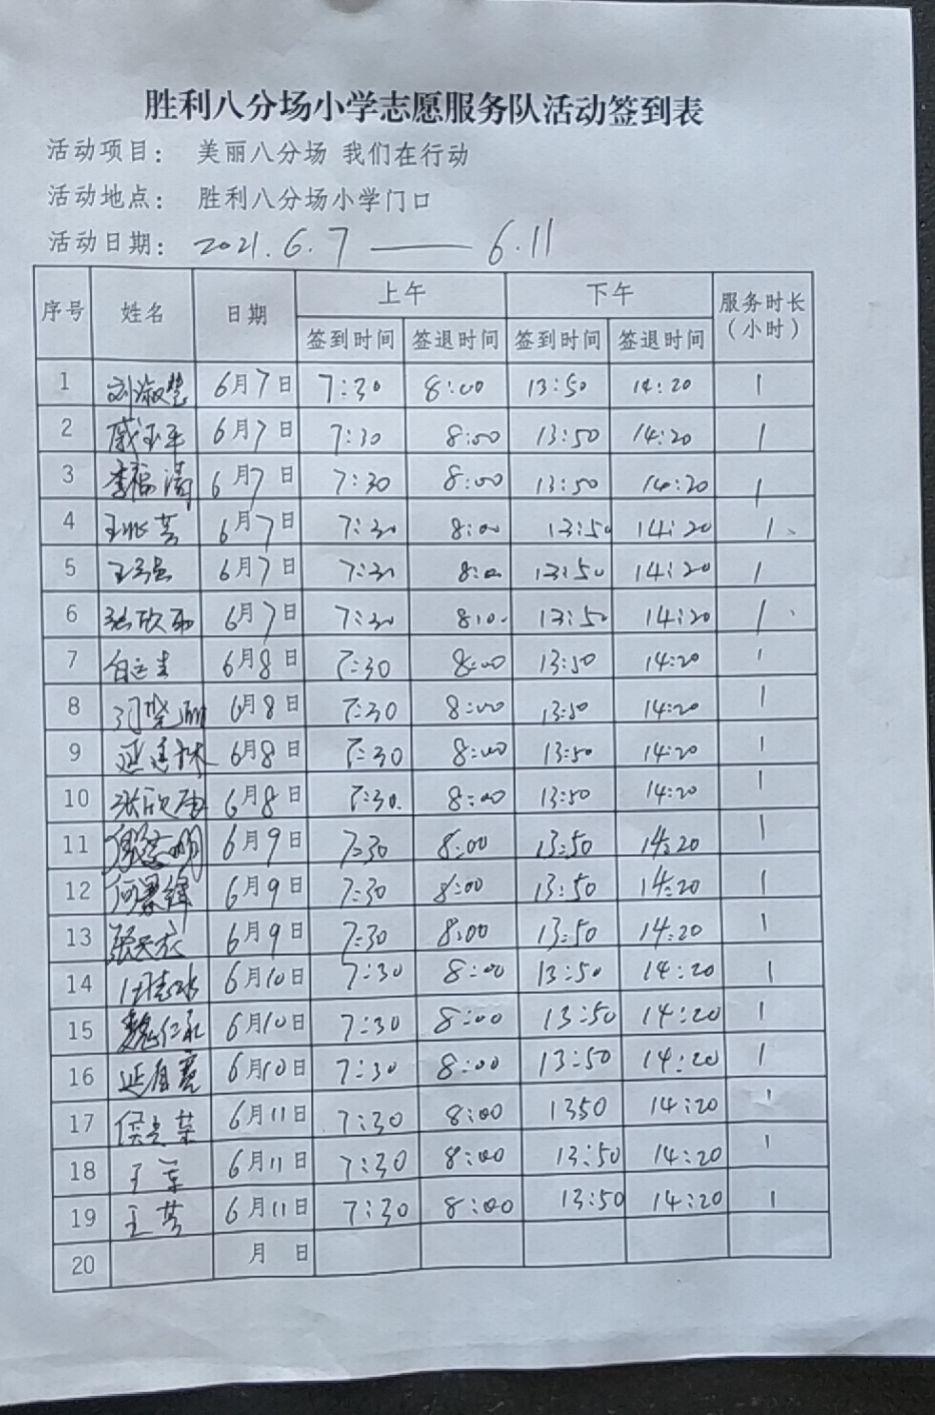 胜利八分场小学志愿服务队活动签到表
活动项目: 美丽八分场 我们在行动
活动地点: 胜利八分场小学门口
活动日期: 2021.6.7 —— 6.11
序号 姓名 日期 上午 下午 服务时长(小时)
签到时间 签退时间 签到时间 签退时间
1 刘淑慧 6月7日 7:30 8:00 13:50 14:20 1
2 戚玉平 6月7日 7:30 8:00 13:50 14:20 1
3 李福涛 6月7日 7:30 8:00 13:50 14:20 1
4 6月7日 7:30 8:00 13:50 14:20 1
5 6月7日 7:30 8:00 13:50 14:20 1
6 张欣雨 6月7日 7:30 8:00 13:50 14:20 1
7 6月8日 7:30 8:00 13:50 14:20 1
8 6月8日 7:30 8:00 13:50 14:20 1
9 6月8日 7:30 8:00 13:50 14:20 1
10 6月8日 7:30 8:00 13:50 14:20 1
11 6月9日 7:30 8:00 13:50 14:20 1
12 6月9日 7:30 8:00 13:50 14:20 1
13 6月9日 7:30 8:00 13:50 14:20 1
14 6月10日 7:30 8:00 13:50 14:20 1
15 魏仁永 6月10日 7:30 8:00 13:50 14:20 1
16 6月10日 7:30 8:00 13:50 14:20 1
17 6月11日 7:30 8:00 1350 14:20 1
18 6月11日 7:30 8:00 13:50 14:20 1
19 王芳 6月11日 7:30 8:00 13:50 14:20 1
20 月 日